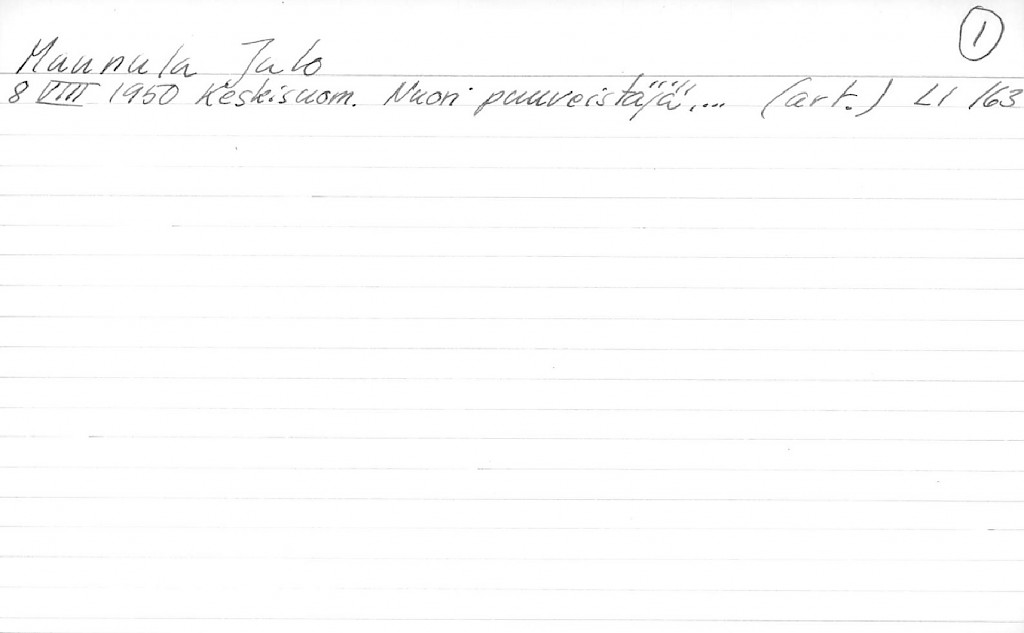 1
Maunula Jalo
8 VIII 1950 Keskisuom. Nuori puuveistäjä, ... (art.) LI /63